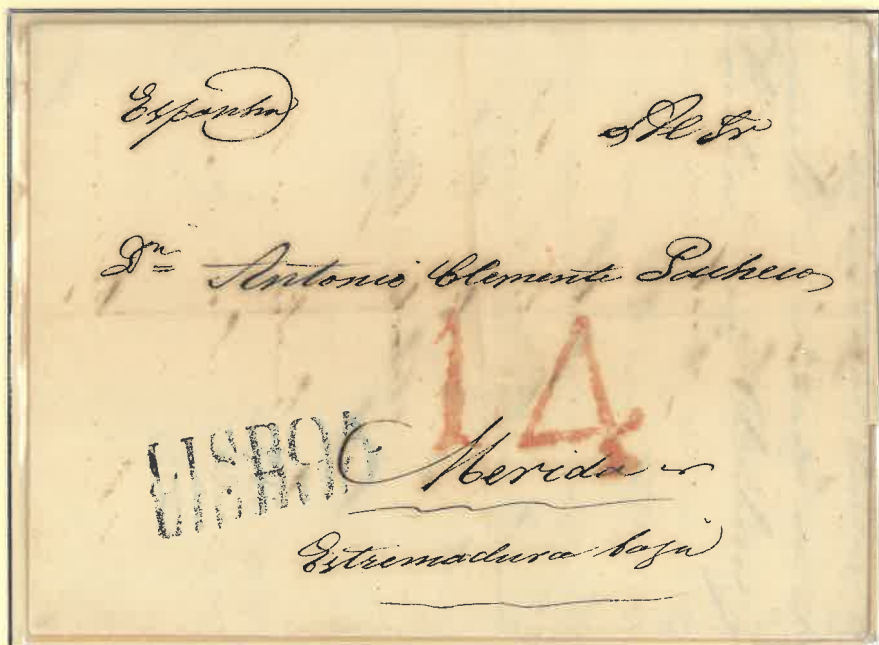 Espanha
Al Sr
Dn Antonio Clemente Pacheco
14
LISBOA
Merida
Estremadura baja